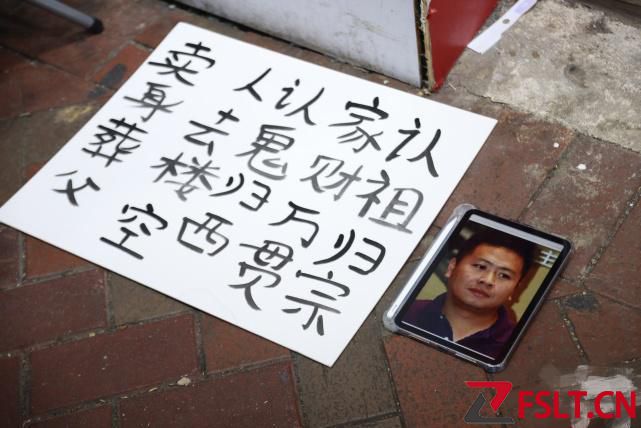 认祖归宗
家财万贯
认鬼归西
人去楼空
卖身葬父
主
FSLT.CN